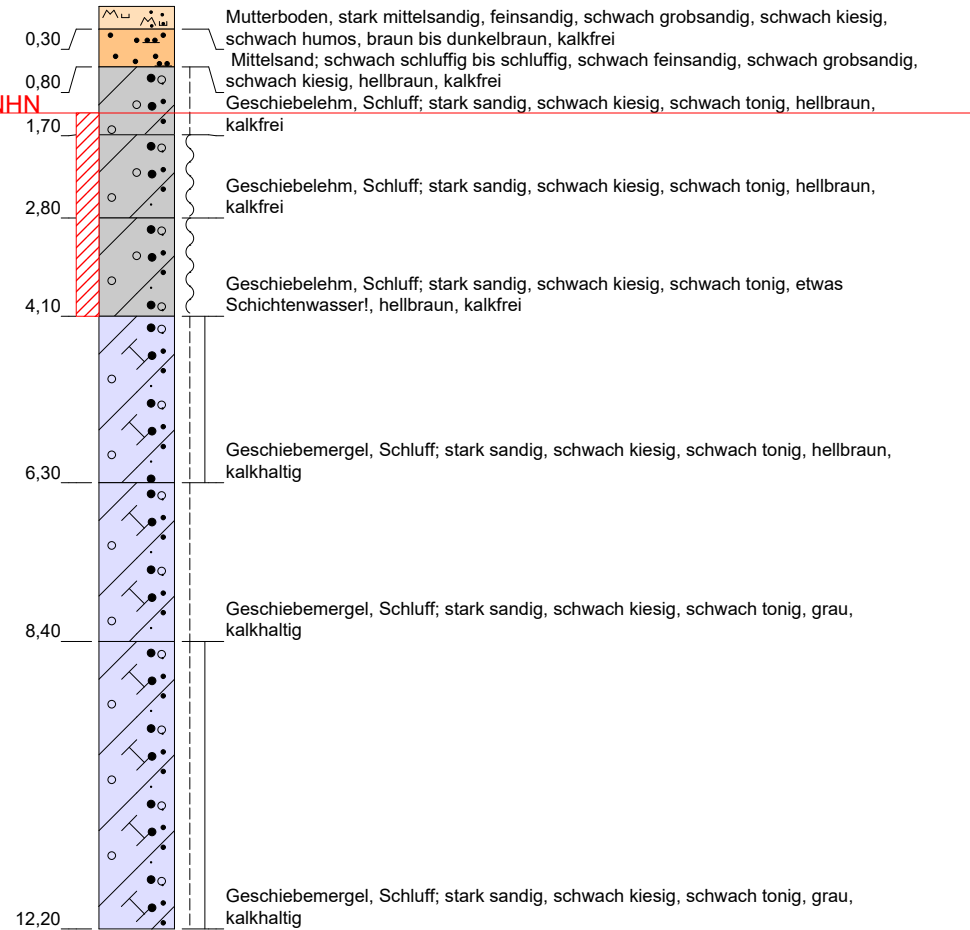 Mutterboden, stark mittelsandig, feinsandig, schwach grobsandig, schwach kiesig,
0,30 schwach humos, braun bis dunkelbraun, kalkfrei
Mittelsand; schwach schluffig bis schluffig, schwach feinsandig, schwach grobsandig,
0,80 schwach kiesig, hellbraun, kalkfrei
NHN Geschiebelehm, Schluff; stark sandig, schwach kiesig, schwach tonig, hellbraun,
1,70 kalkfrei
Geschiebelehm, Schluff; stark sandig, schwach kiesig, schwach tonig, hellbraun,
2,80 kalkfrei
Geschiebelehm, Schluff; stark sandig, schwach kiesig, schwach tonig, etwas
4,10 Schichtenwasser!, hellbraun, kalkfrei
Geschiebemergel, Schluff; stark sandig, schwach kiesig, schwach tonig, hellbraun,
6,30 kalkhaltig
Geschiebemergel, Schluff; stark sandig, schwach kiesig, schwach tonig, grau,
8,40 kalkhaltig
Geschiebemergel, Schluff; stark sandig, schwach kiesig, schwach tonig, grau,
12,20 kalkhaltig